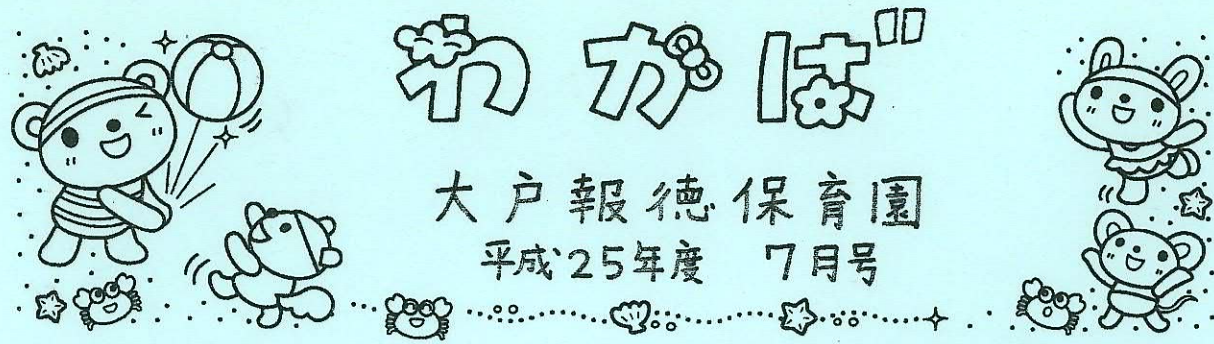 わかば
大戸報徳保育園
平成25年度 7月号